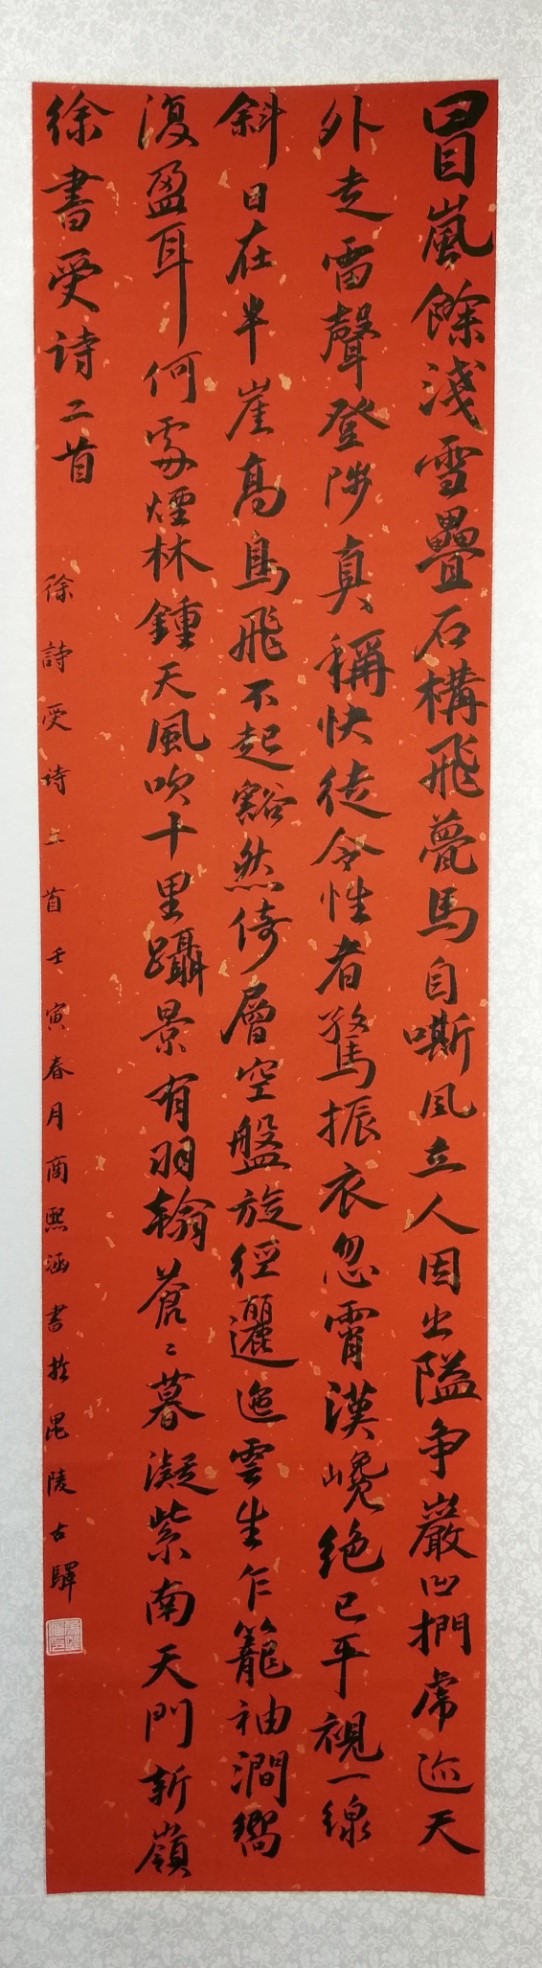 冒嵐餘淺雪疊石構飛甍馬自嘶風立人因出隘爭巖凹捫虎迹天
外走雷聲登陟真稱快徒令性者驚振衣忽霄漢巉絶已平視一線
斜日在半崖高鳥飛不起豁然倚層空盤旋徑邐迤雲生乍籠袖澗響
復盈耳何處煙林鍾天風吹十里躡景有羽翰蒼〻暮凝紫南天門新嶺
徐書受诗二首
徐詩受诗二首壬寅春月商熙涵書於毘陵古驛